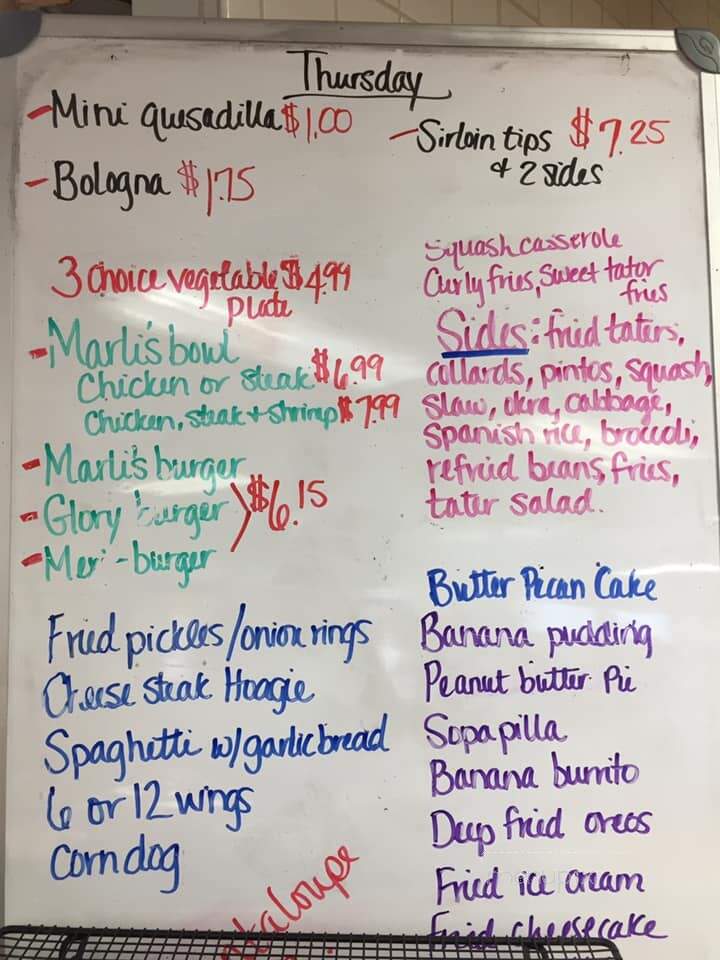 Thursday
- Mini quesadilla $1.00
- Bologna $1.75
- Sirloin tips $7.25
+ 2 sides
3 choice vegetable $4.99
plate
- Marli's bowl
Chicken or steak $6.99
Chicken, steak + shrimp $7.99
- Marli's burger
- Glory burger $6.15
- Mexi-burger
Fried pickles/onion rings
Cheese steak Hoagie
Spaghetti w/garlic bread
6 or 12 wings
Corn dog
Squash casserole
Curly fries, Sweet tator
fries
Sides: fried taters,
collards, pintos, squash,
slaw, okra, cabbage,
Spanish rice, broccoli,
refried beans, fries,
tater salad.
Butter Pecan Cake
Banana pudding
Peanut butter Pie
Sopapilla
Banana burrito
Deep fried oreos
Fried ice cream
Fried cheesecake